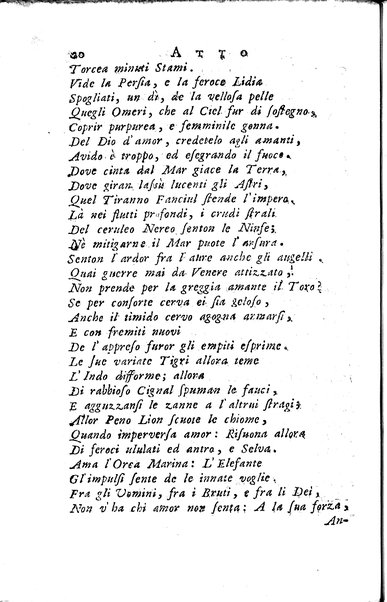 20 ATTO
Torcea minuti Stami.
Vide la Persia, e la feroce Lidia
Spogliati, un dì, de la vellosa pelle
Quegli Omeri, che al Ciel fur di sostegno,
Coprir purpurea, e femminile gonna.
Del Dio d'amor, credetelo agli amanti,
Avido è troppo, ed esegrando il fuoco.
Dove cinta dal Mar giace la Terra,
Dove giran lassù lucenti gli Astri,
Quel Tiranno Fanciul stende l'impero.
Là nei flutti profondi, i crudi strali
Del ceruleo Nereo senton le Ninfe;
Nè mitigarne il Mar puote l'arsura.
Senton l'ardor fra l'aure anche gli augelli.
Quai guerre mai da Venere attizzato,
Non prende per la greggia amante il Toro?
Se per consorte cerva ei sia geloso,
Anche il timido cervo agogna armarsi,
E con fremiti nuovi
De l'appreso furor gli empiti esprime.
Le sue variate Tigri allora teme
L'Indo difforme; allora
Di rabbioso Cignal spuman le fauci,
E agguzzansi le zanne a l'altrui stragi;
Allor Peno Lion scuote le chiome,
Quando imperversa amor: Risuona allora
Di feroci ululati ed antro, e Selva.
Ama l'Orca Marina: L'Elefante
Gl'impulsi sente de le innate voglie.
Fra gli Uomini, fra i Bruti, e fra li Dei,
Non v'ha chi amor non senta; A la sua forza,
An-